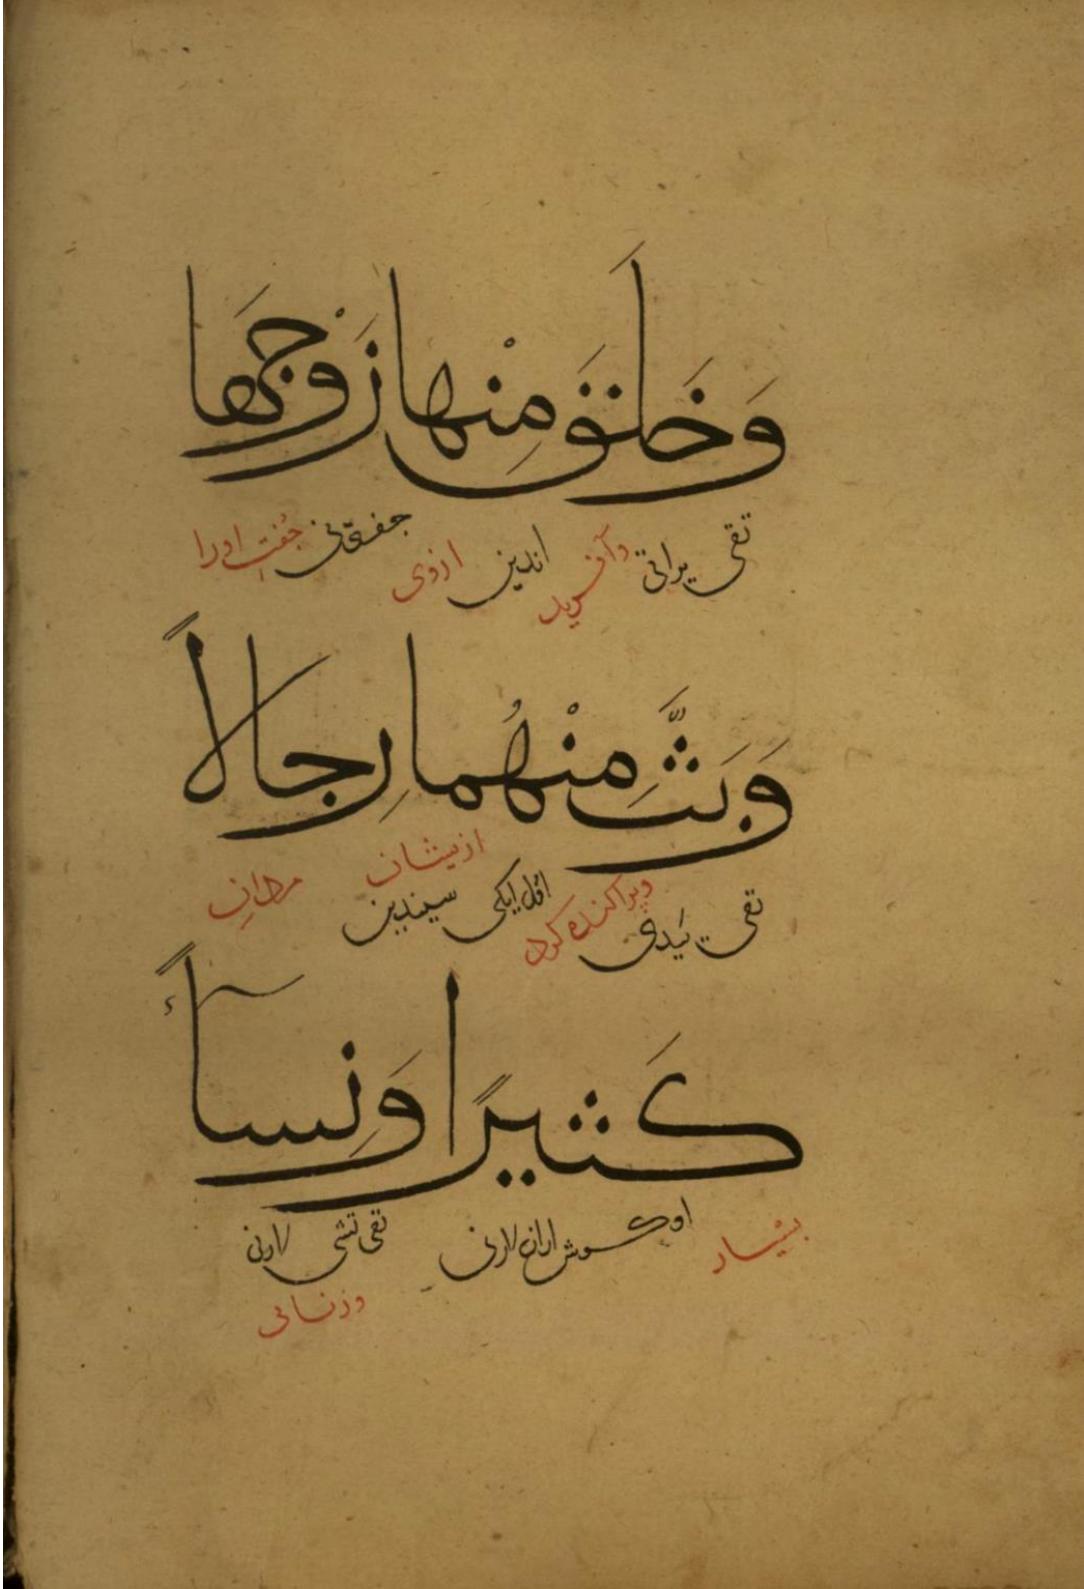 وَخَلَقَ مِنْهَا زَوْجَهَا
تقی یراتی وآفرید اندین ازوی جفتنی جُفتِ اورا
وَبَثَّ مِنْهُمَا رِجَالاً
تقی یَیدی وپراکنده کرد اول ایکی سیندین ازیشان مردانِ
كَثِيرًا وَنِسَآءً
بسیار اوکوش ارانلارنی تقی تشی لارنی
وزنانی